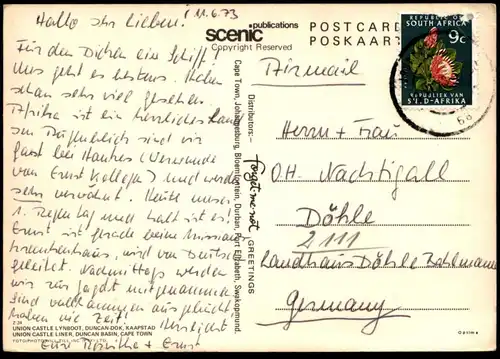 11.6.73
Hallo Ihr Lieben!
Für den Dicken ein Schiff!
Uns geht es bestens. Haben
schon sehr viel gesehen.
Afrika ist ein herrliches Land
sind wir
Gast bei
von Ernst Kollegen) und werden
sehr verwöhnt. Heute unser
1. Regentag und kalt ist es!
Ernst ist gerade beim
krankenhaus, wird von
geleitet. Nachmittags werden
wir zur Jagd mitgenommen
Sind vollkommen ausgebucht
haben nie Zeit! Herzlichst
Eure + Ernst
scenic publications
Copyright Reserved
POSTCARD
POSKAART
Airmail
REPUBLIC OF
SOUTH AFRICA
9c
REPUBLIEK VAN
SUID-AFRIKA
Distributors:-
Cape Town, Johannesburg, Bloemfontein, Durban, Port Elizabeth, Swakopmund.
forget-me-not
GREETINGS
Herrn + Frau
O.H. Nachtigall
Döhle
2111
Landhaus Döhle
Germany
UNION CASTLE LYNBOOT, DUNCAN-DOK, KAAPSTAD
UNION CASTLE LINER, DUNCAN BASIN, CAPE TOWN